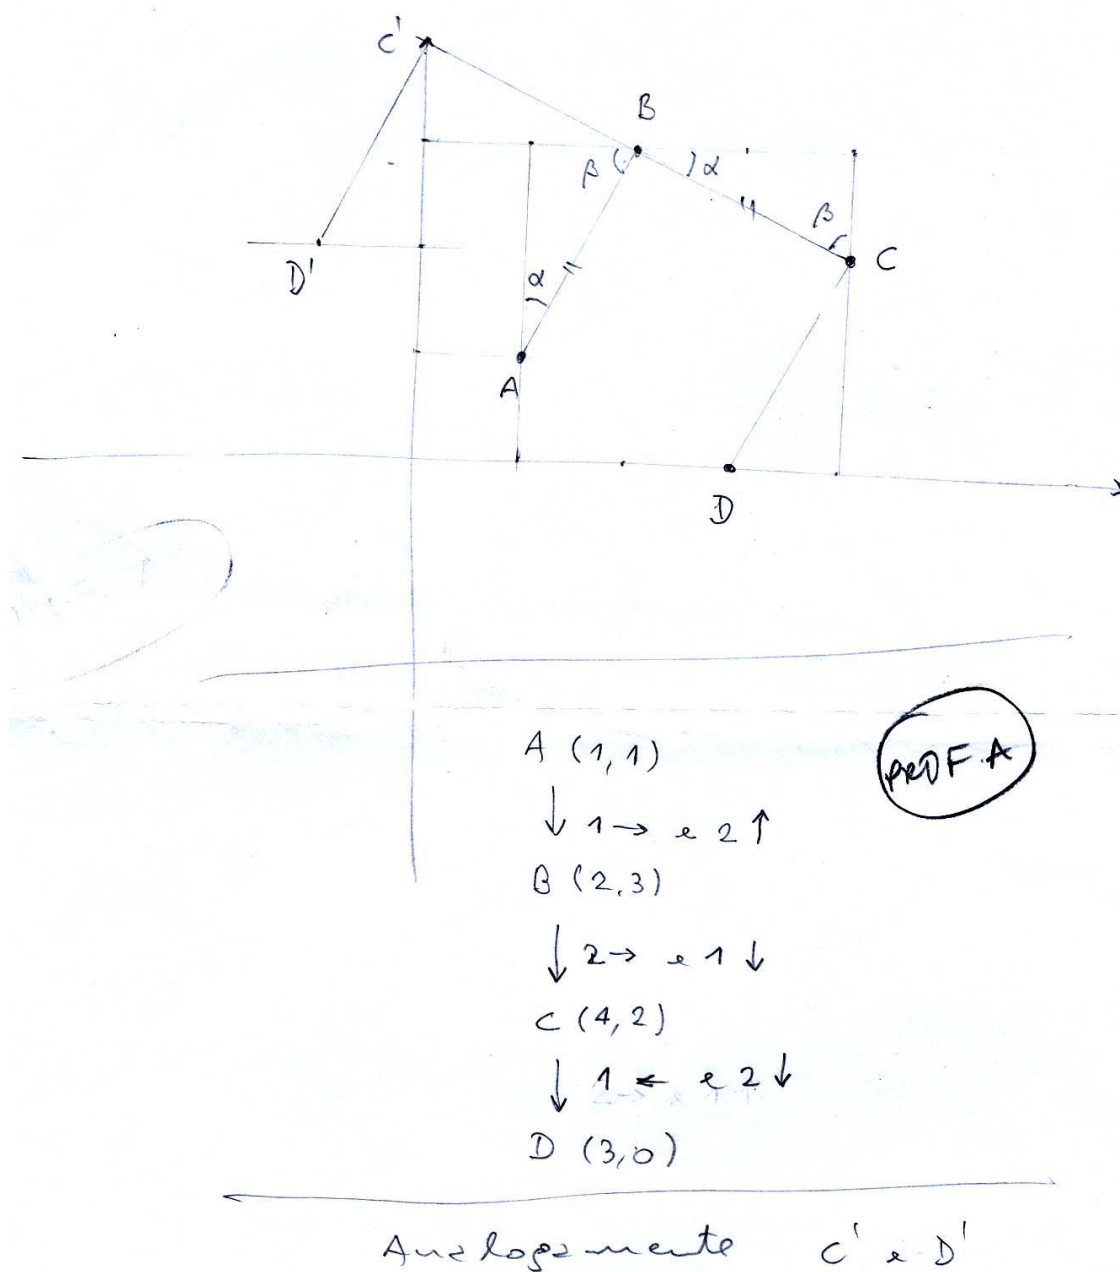 C'
B
β α
β
C
D'
α
A
D
A (1,1)
PROF.A
↓ 1→ e 2↑
B (2,3)
↓ 2→ e 1↓
C (4,2)
↓ 1← e 2↓
D (3,0)
Analogamente C' e D'